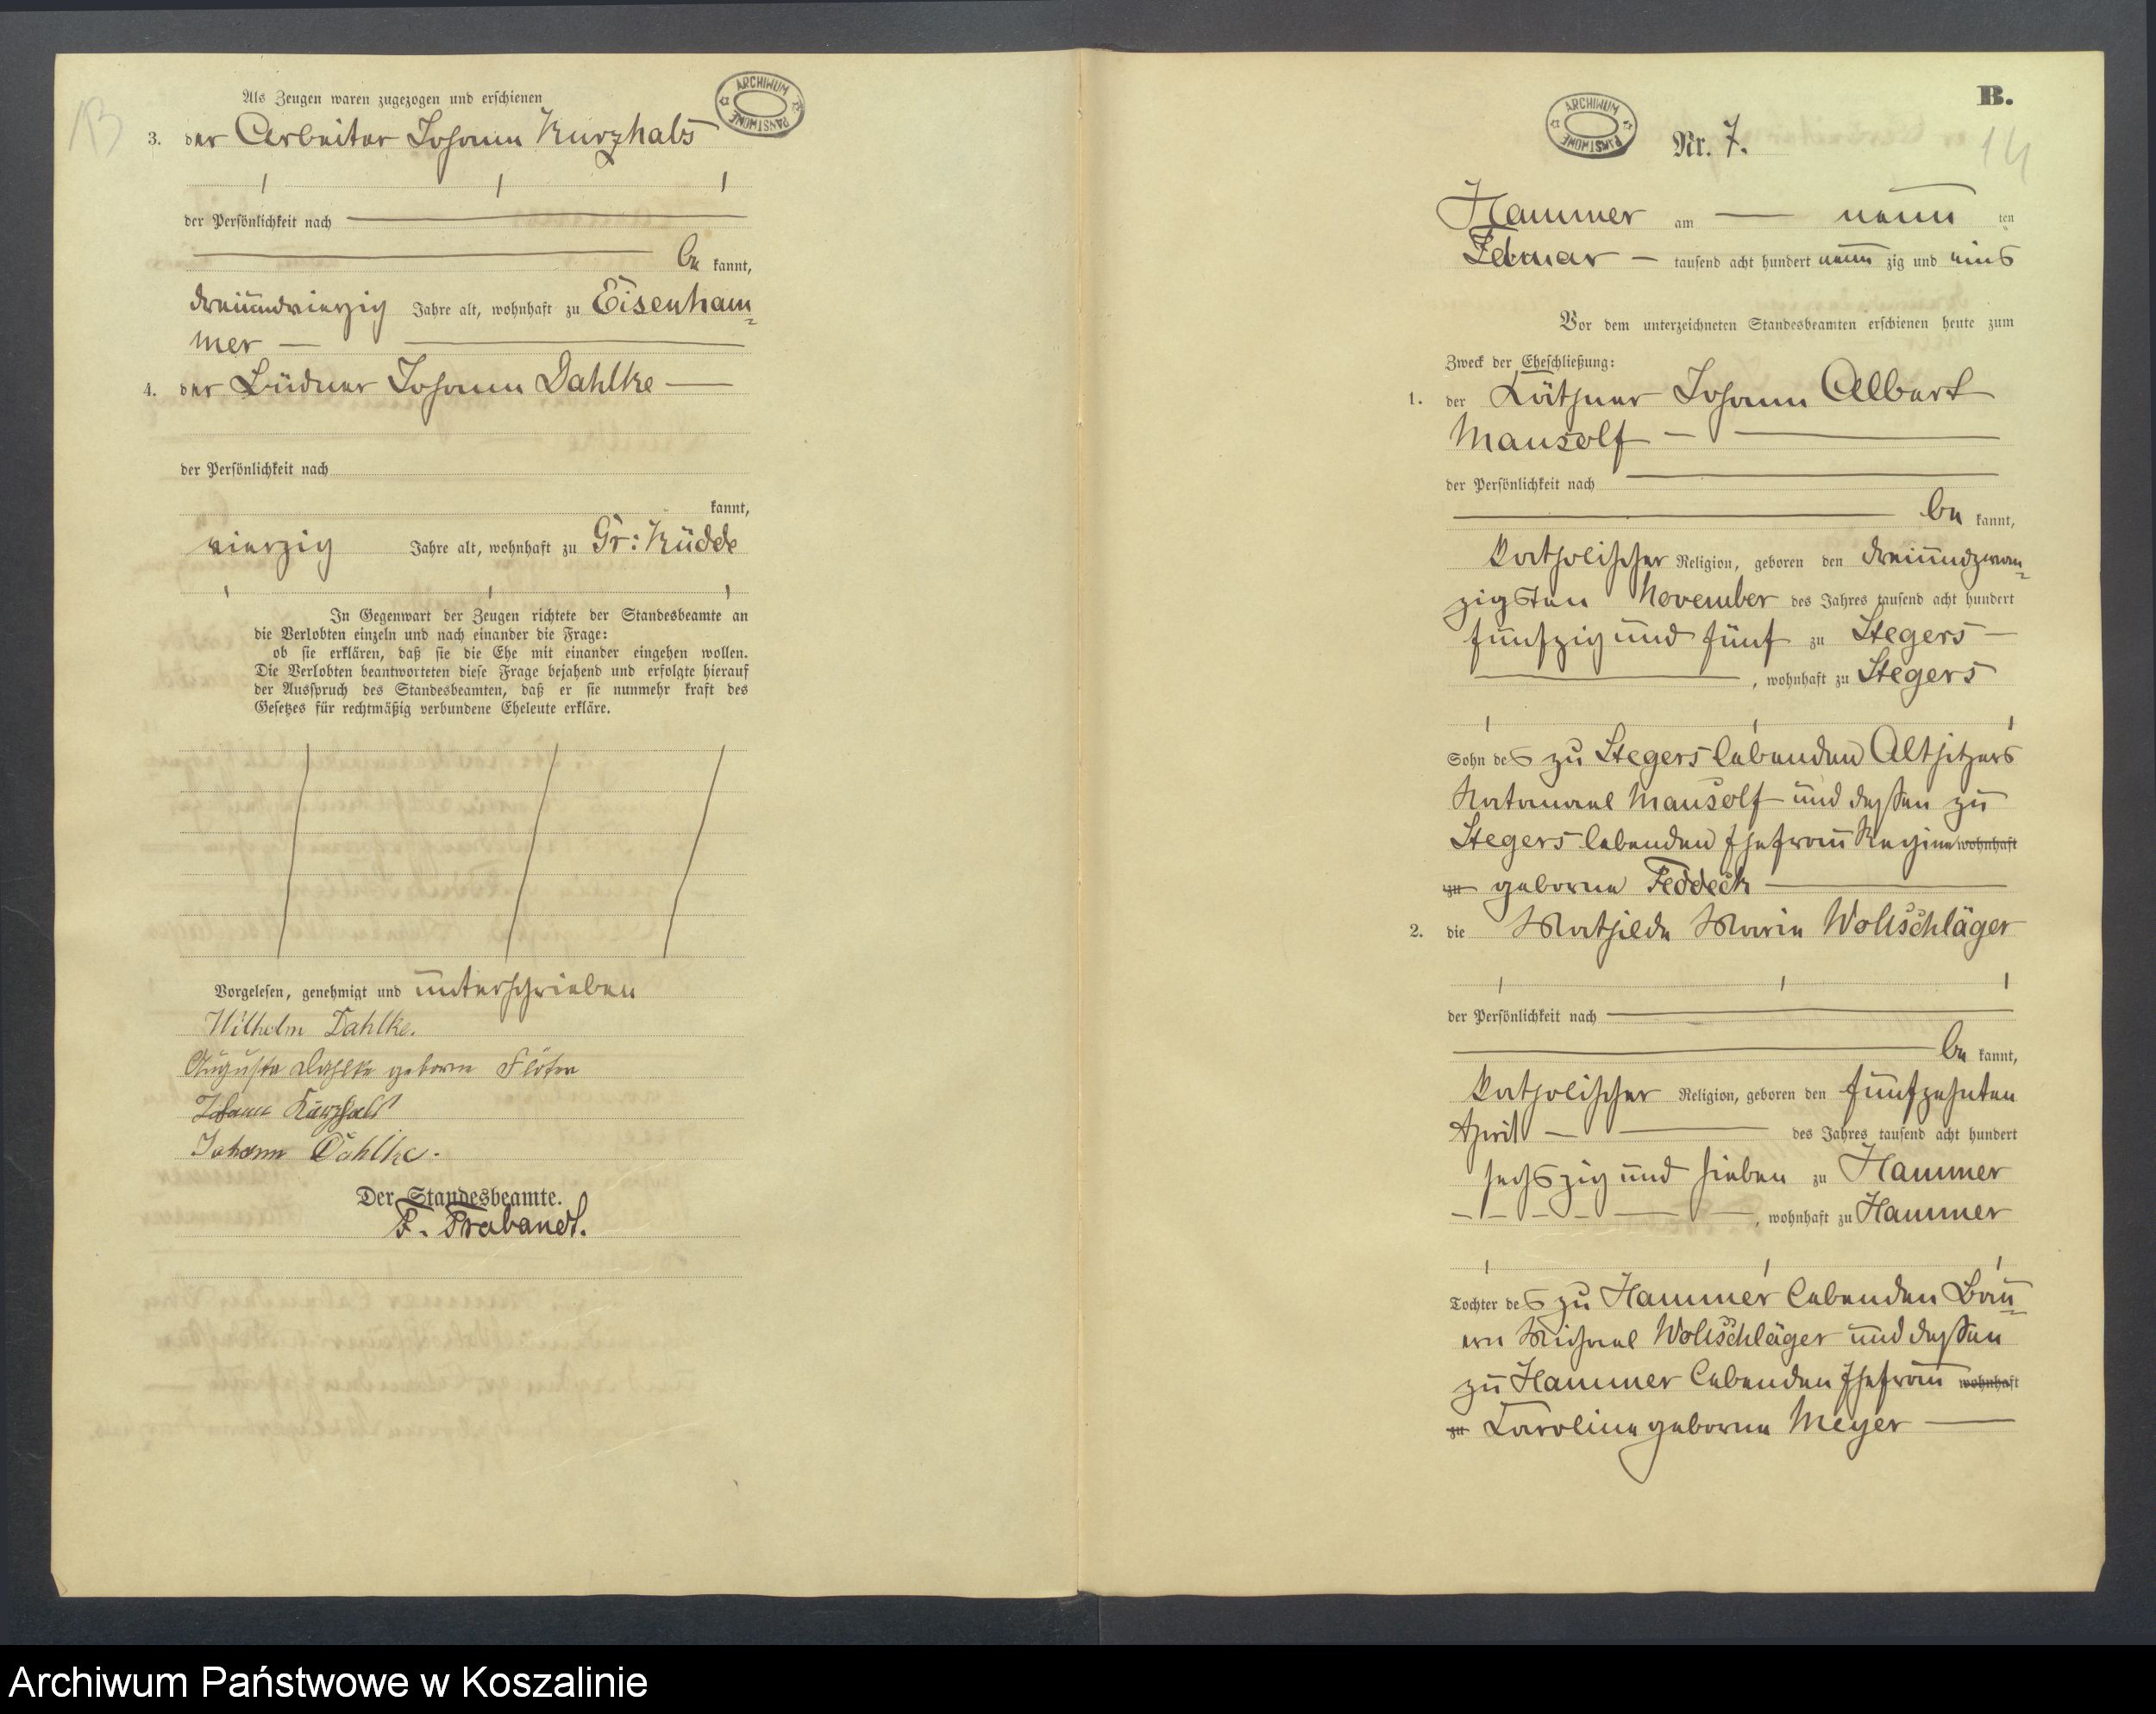 13
Als Zeugen waren zugezogen und erschienen
ARCHIWUM PAŃSTWOWE
3. der Arbeiter Johann Kurzhals
der Persönlichkeit nach
be kannt,
dreiundvierzig Jahre alt, wohnhaft zu Eisenham=
mer
4. der Büdner Johann Dahlke
der Persönlichkeit nach
kannt,
vierzig Jahre alt, wohnhaft zu Gr: Küdde
In Gegenwart der Zeugen richtete der Standesbeamte an
die Verlobten einzeln und nach einander die Frage:
ob sie erklären, daß sie die Ehe mit einander eingehen wollen.
Die Verlobten beantworteten diese Frage bejahend und erfolgte hierauf
der Ausspruch des Standesbeamten, daß er sie nunmehr kraft des
Gesetzes für rechtmäßig verbundene Eheleute erkläre.
Vorgelesen, genehmigt und unterschrieben
Wilhelm Dahlke.
Auguste Dahlke geborne Flöter
Johann Kurzhals
Johann Dahlke.
Der Standesbeamte.
F. Brabandt.
B.
ARCHIWUM PAŃSTWOWE
14
Nr. 7.
Hammer am — neun ten
Februar — tausend acht hundert neun zig und eins
Vor dem unterzeichneten Standesbeamten erschienen heute zum
Zweck der Eheschließung:
1. der Käthner Johann Albert
Mausolf
der Persönlichkeit nach
be kannt,
katholischer Religion, geboren den dreiundzwan=
zigsten November des Jahres tausend acht hundert
fünfzig und fünf zu Stegers
, wohnhaft zu Stegers
Sohn des zu Stegers lebenden Altsitzers
Natanael Mausolf und dessen zu
Stegers lebenden Ehefrau Regine wohnhaft
zu geborne Feddeck
2. die Mathilde Marie Wollschläger
der Persönlichkeit nach
be kannt,
katholischer Religion, geboren den fünfzehnten
April des Jahres tausend acht hundert
sechszig und sieben zu Hammer
, wohnhaft zu Hammer
Tochter des zu Hammer lebenden Bau=
ern Michael Wollschläger und dessen
zu Hammer lebenden Ehefrau wohnhaft
zu Caroline geborne Meyer
Archiwum Państwowe w Koszalinie